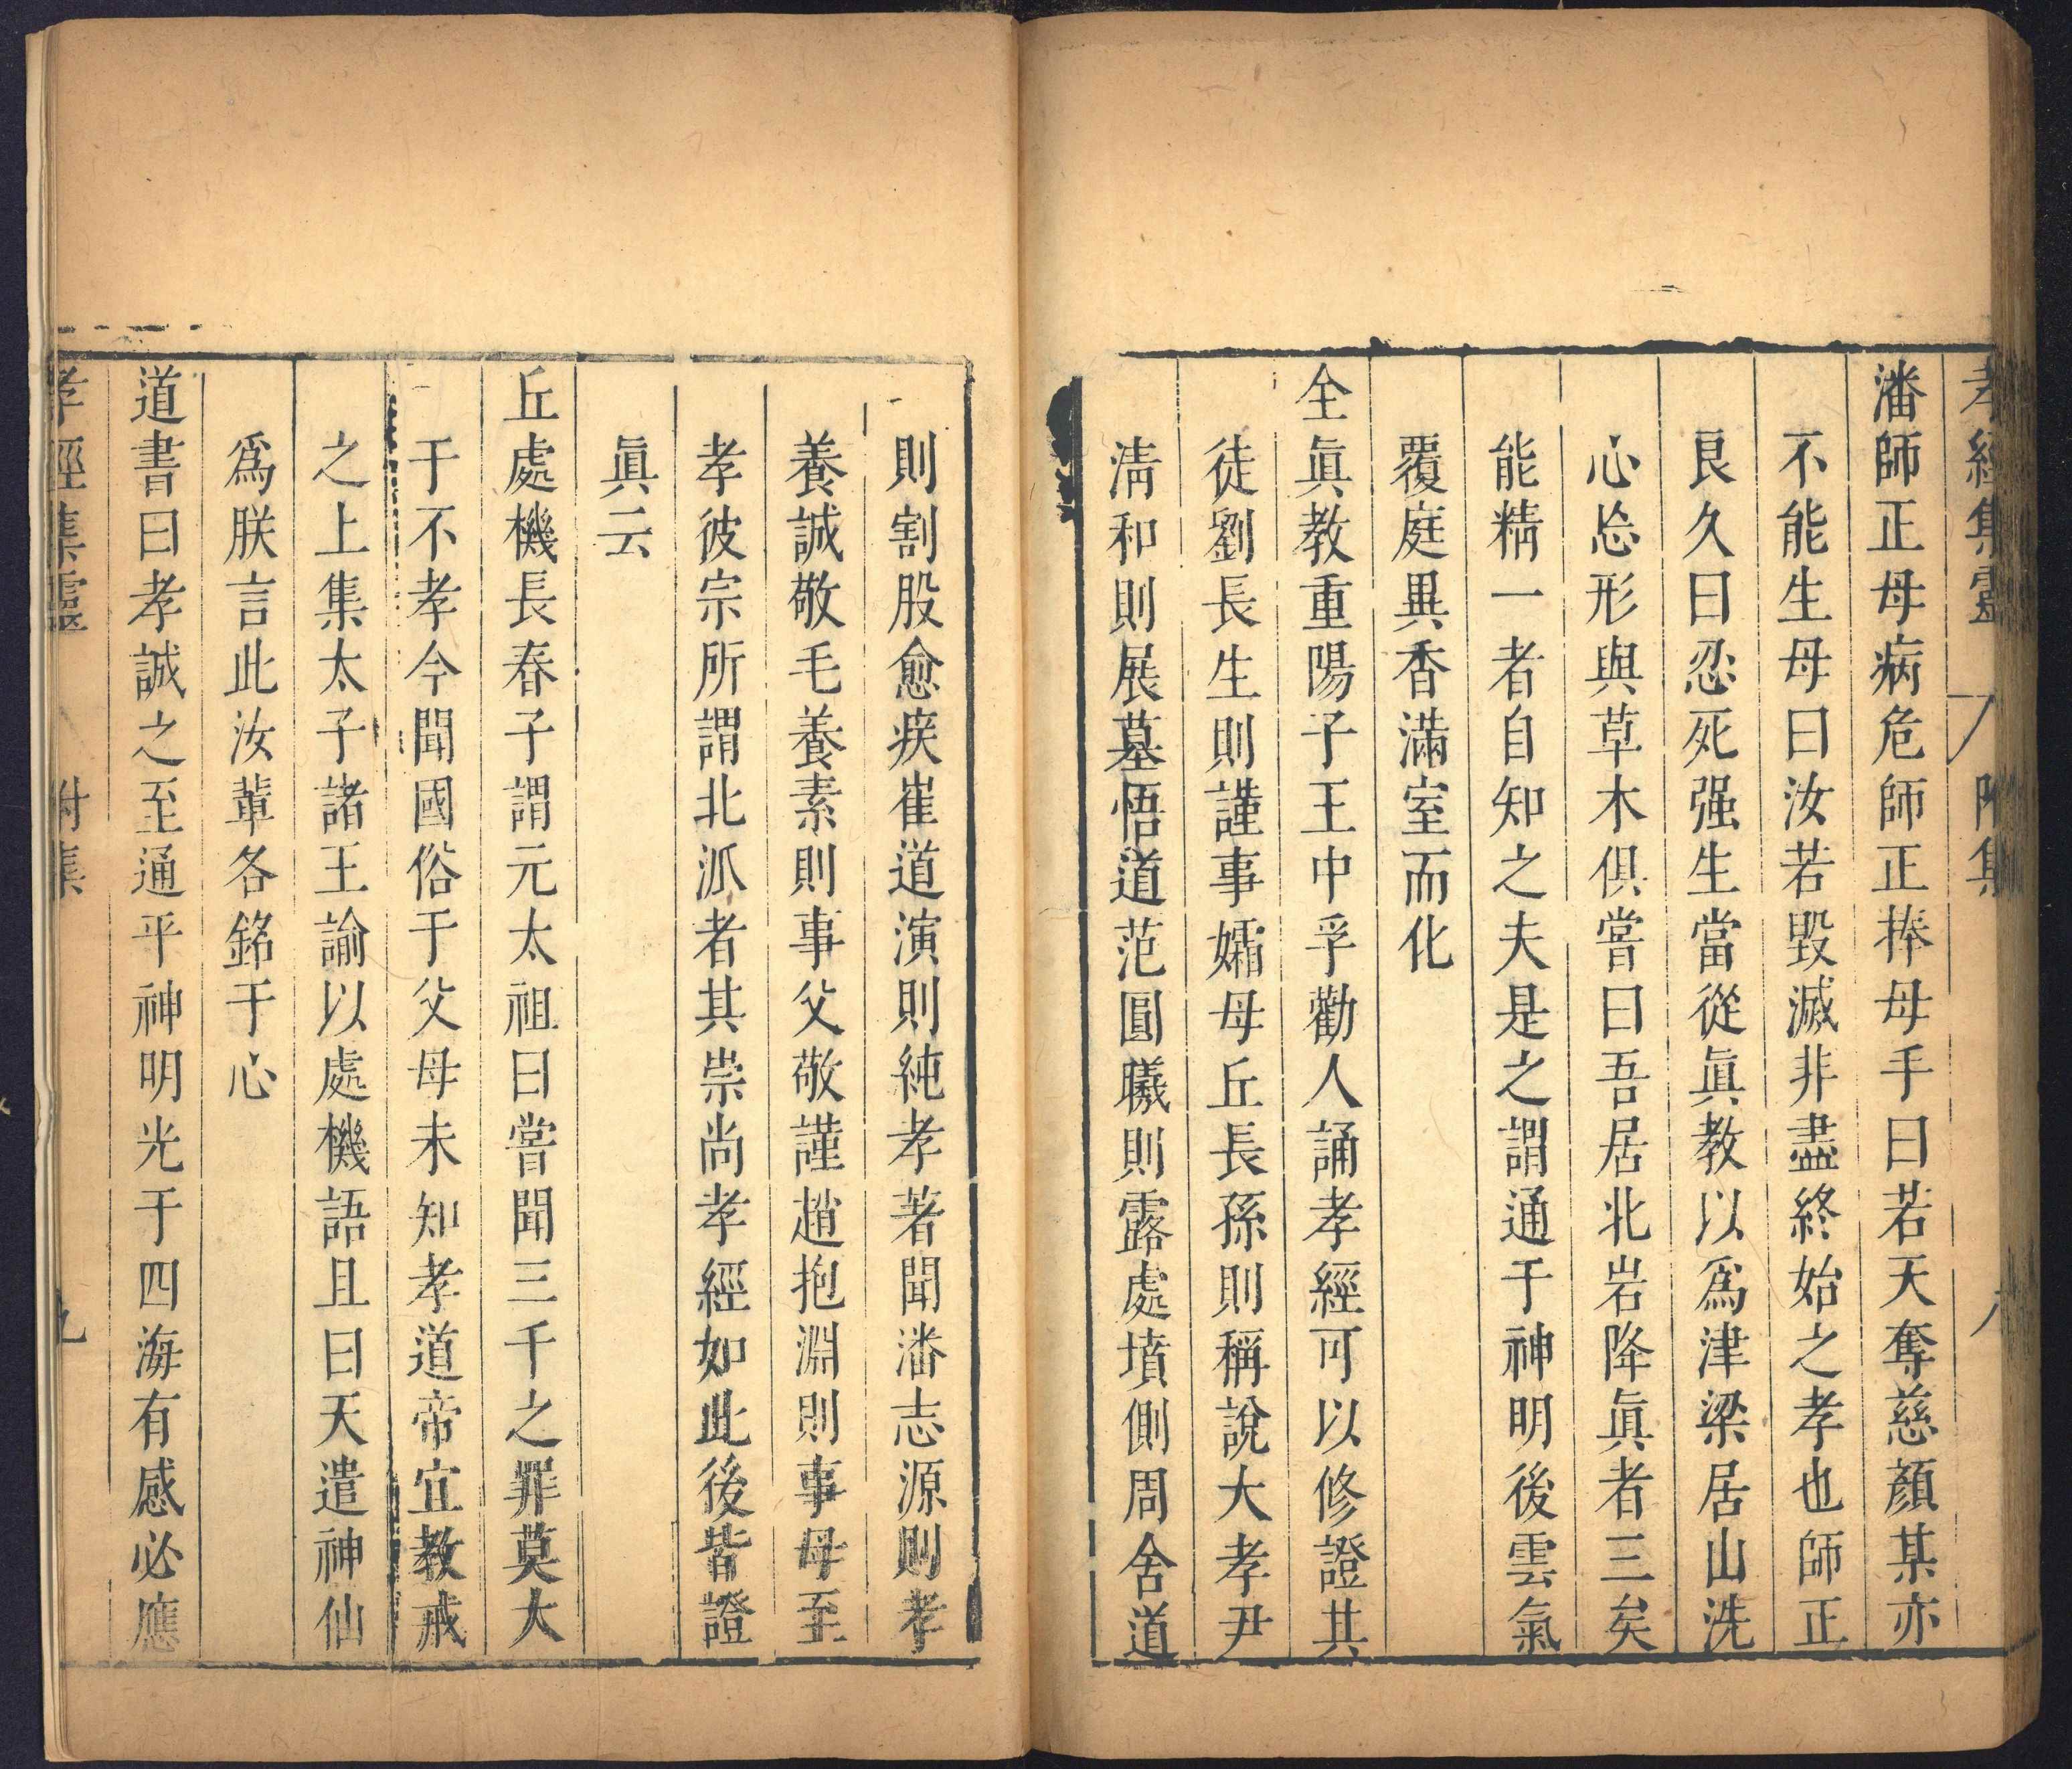 孝經集靈 附集 八
潘師正母病危師正捧母手曰若天奪慈顏某亦
不能生母曰汝若毀滅非盡終始之孝也師正
良久曰忍死强生當從眞教以爲津梁居山洗
心忘形與草木俱嘗曰吾居北岩降眞者三矣
能精一者自知之夫是之謂通于神明後雲氣
覆庭異香滿室而化
全眞教重陽子王中孚勸人誦孝經可以修證其
徒劉長生則謹事孀母丘長孫則稱說大孝尹
淸和則展墓悟道范圓曦則露處墳側周舍道
則割股愈疾崔道演則純孝著聞潘志源則孝
養誠敬毛養素則事父敬謹趙抱淵則事母至
孝彼宗所謂北派者其崇尚孝經如此後皆證
眞云
丘處機長春子謂元太祖曰嘗聞三千之罪莫大
于不孝今聞國俗于父母未知孝道帝宜教戒
之上集太子諸王諭以處機語且曰天遣神仙
爲朕言此汝輩各銘于心
道書曰孝誠之至通乎神明光于四海有感必應
孝經集靈 附集 九